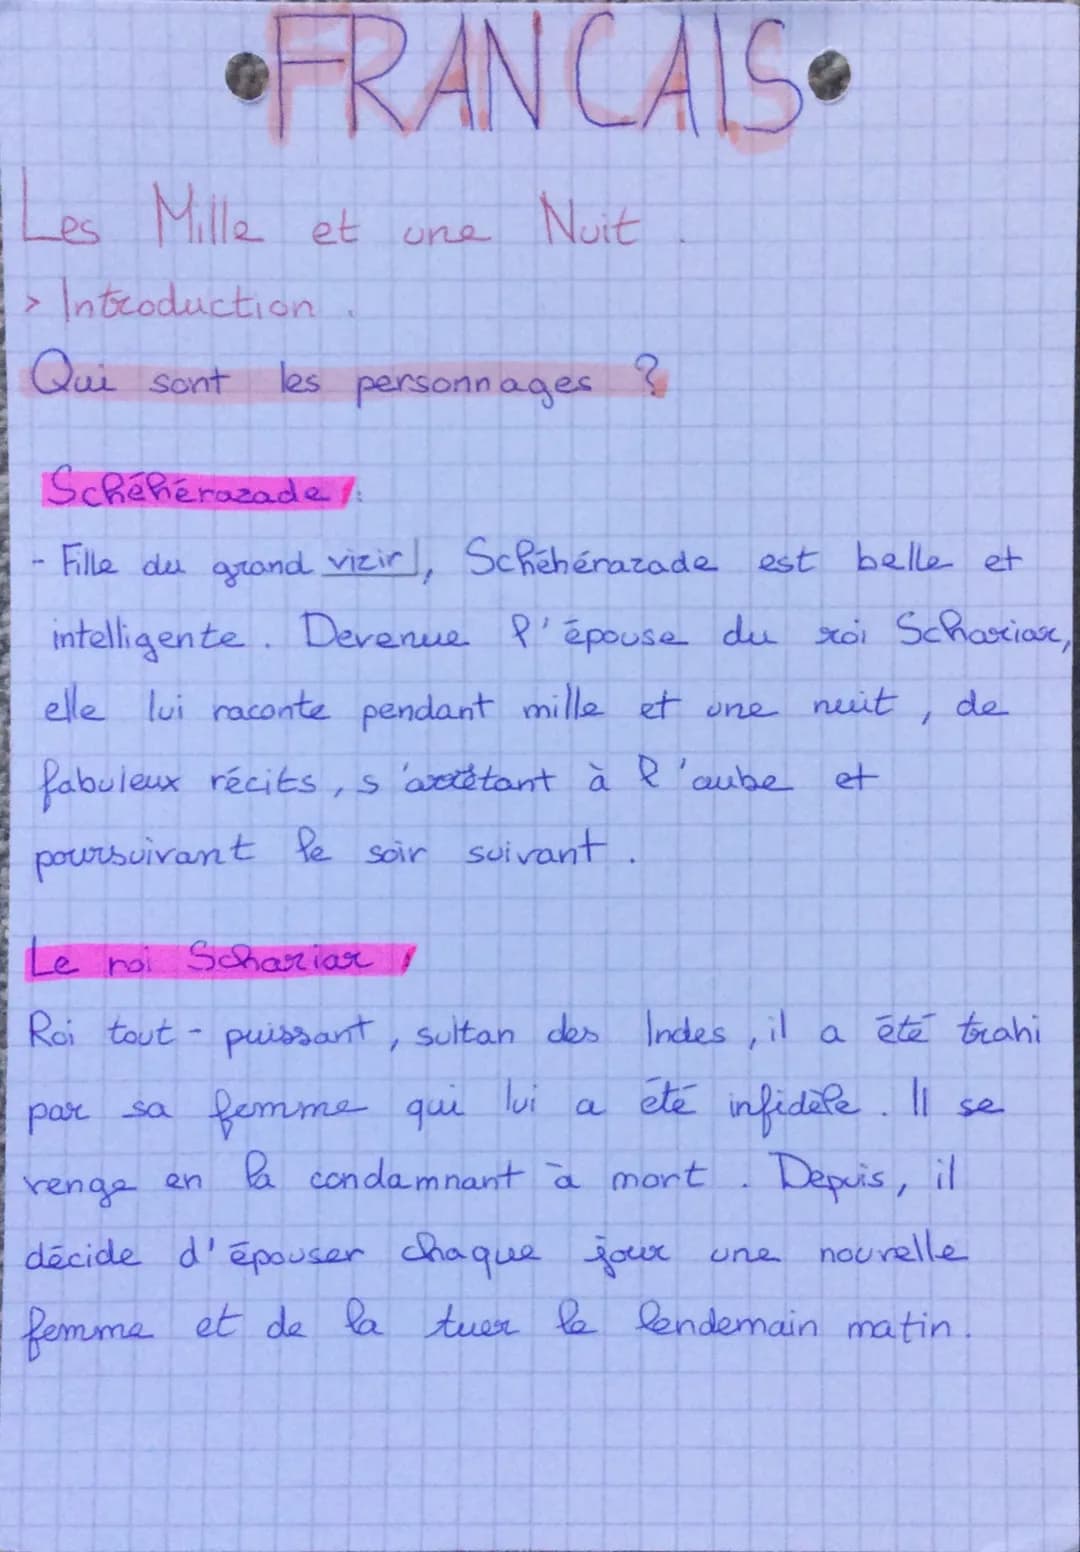 •FRANCAIS•
Les Mille et une Nuit.
> Introduction.
Qui sont les personnages ?
Schéhérazade :
- Fille du grand vizir, Schéhérazade est belle et
intelligente. Devenue l'épouse du roi Schariar,
elle lui raconte pendant mille et une nuit, de
fabuleux récits, s'arrêtant à l'aube et
poursuivant le soir suivant.
Le roi Schariar
Roi tout-puissant, sultan des Indes, il a été trahi
par sa femme qui lui a été infidèle. Il se
venge en la condamnant à mort. Depuis, il
décide d'épouser chaque jour une nouvelle
femme et de la tuer le lendemain matin.